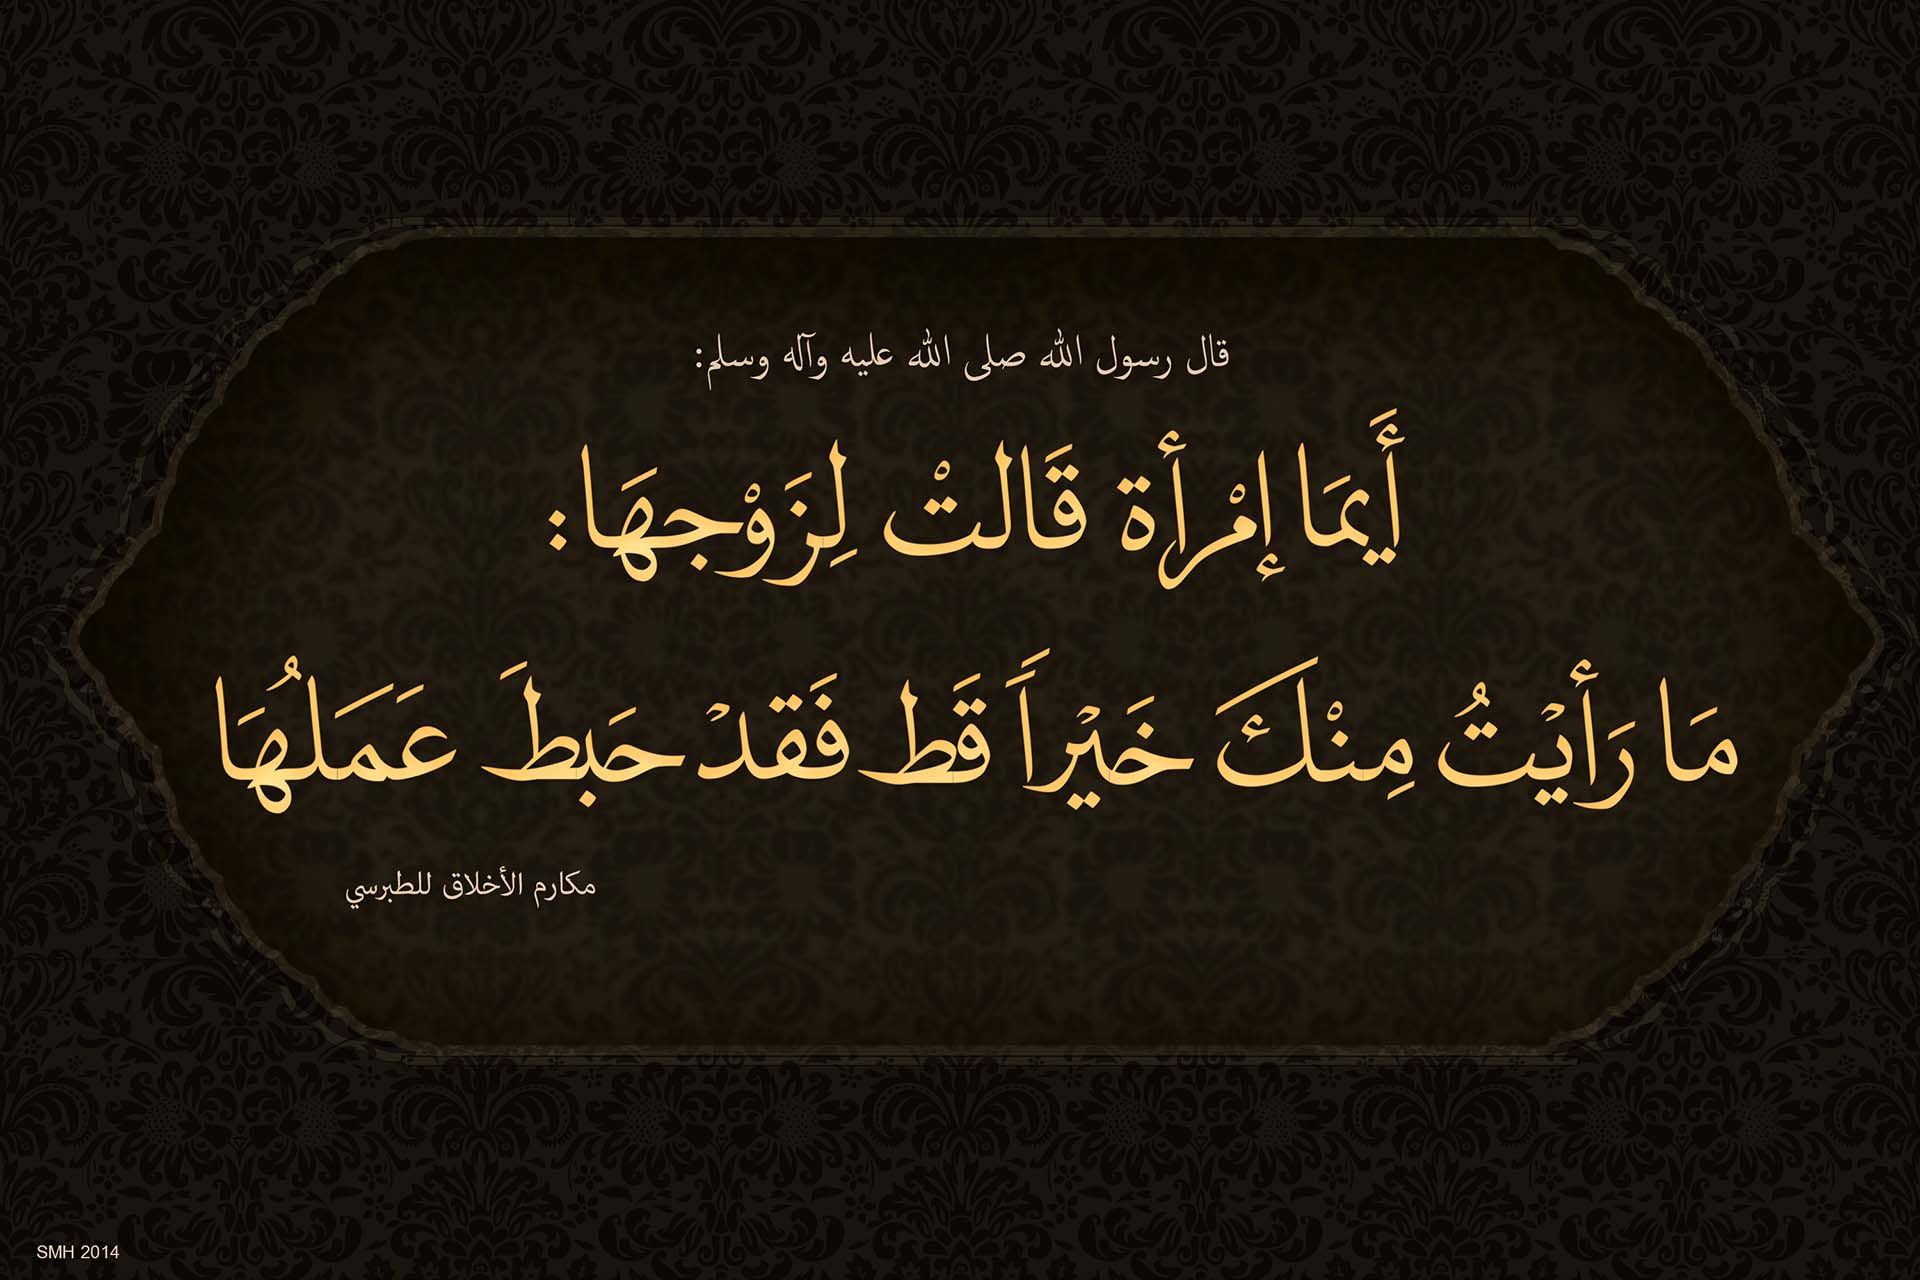 قال رسول الله صلى الله عليه وآله وسلم:
أَيمَا إمْرأة قَالتْ لِزَوْجهَا:
مَا رَأيْتُ مِنْكَ خَيْراً قَط فَقدْ حَبطَ عَمَلهَُا
مكارم الأخلاق للطبرسي
SMH 2014